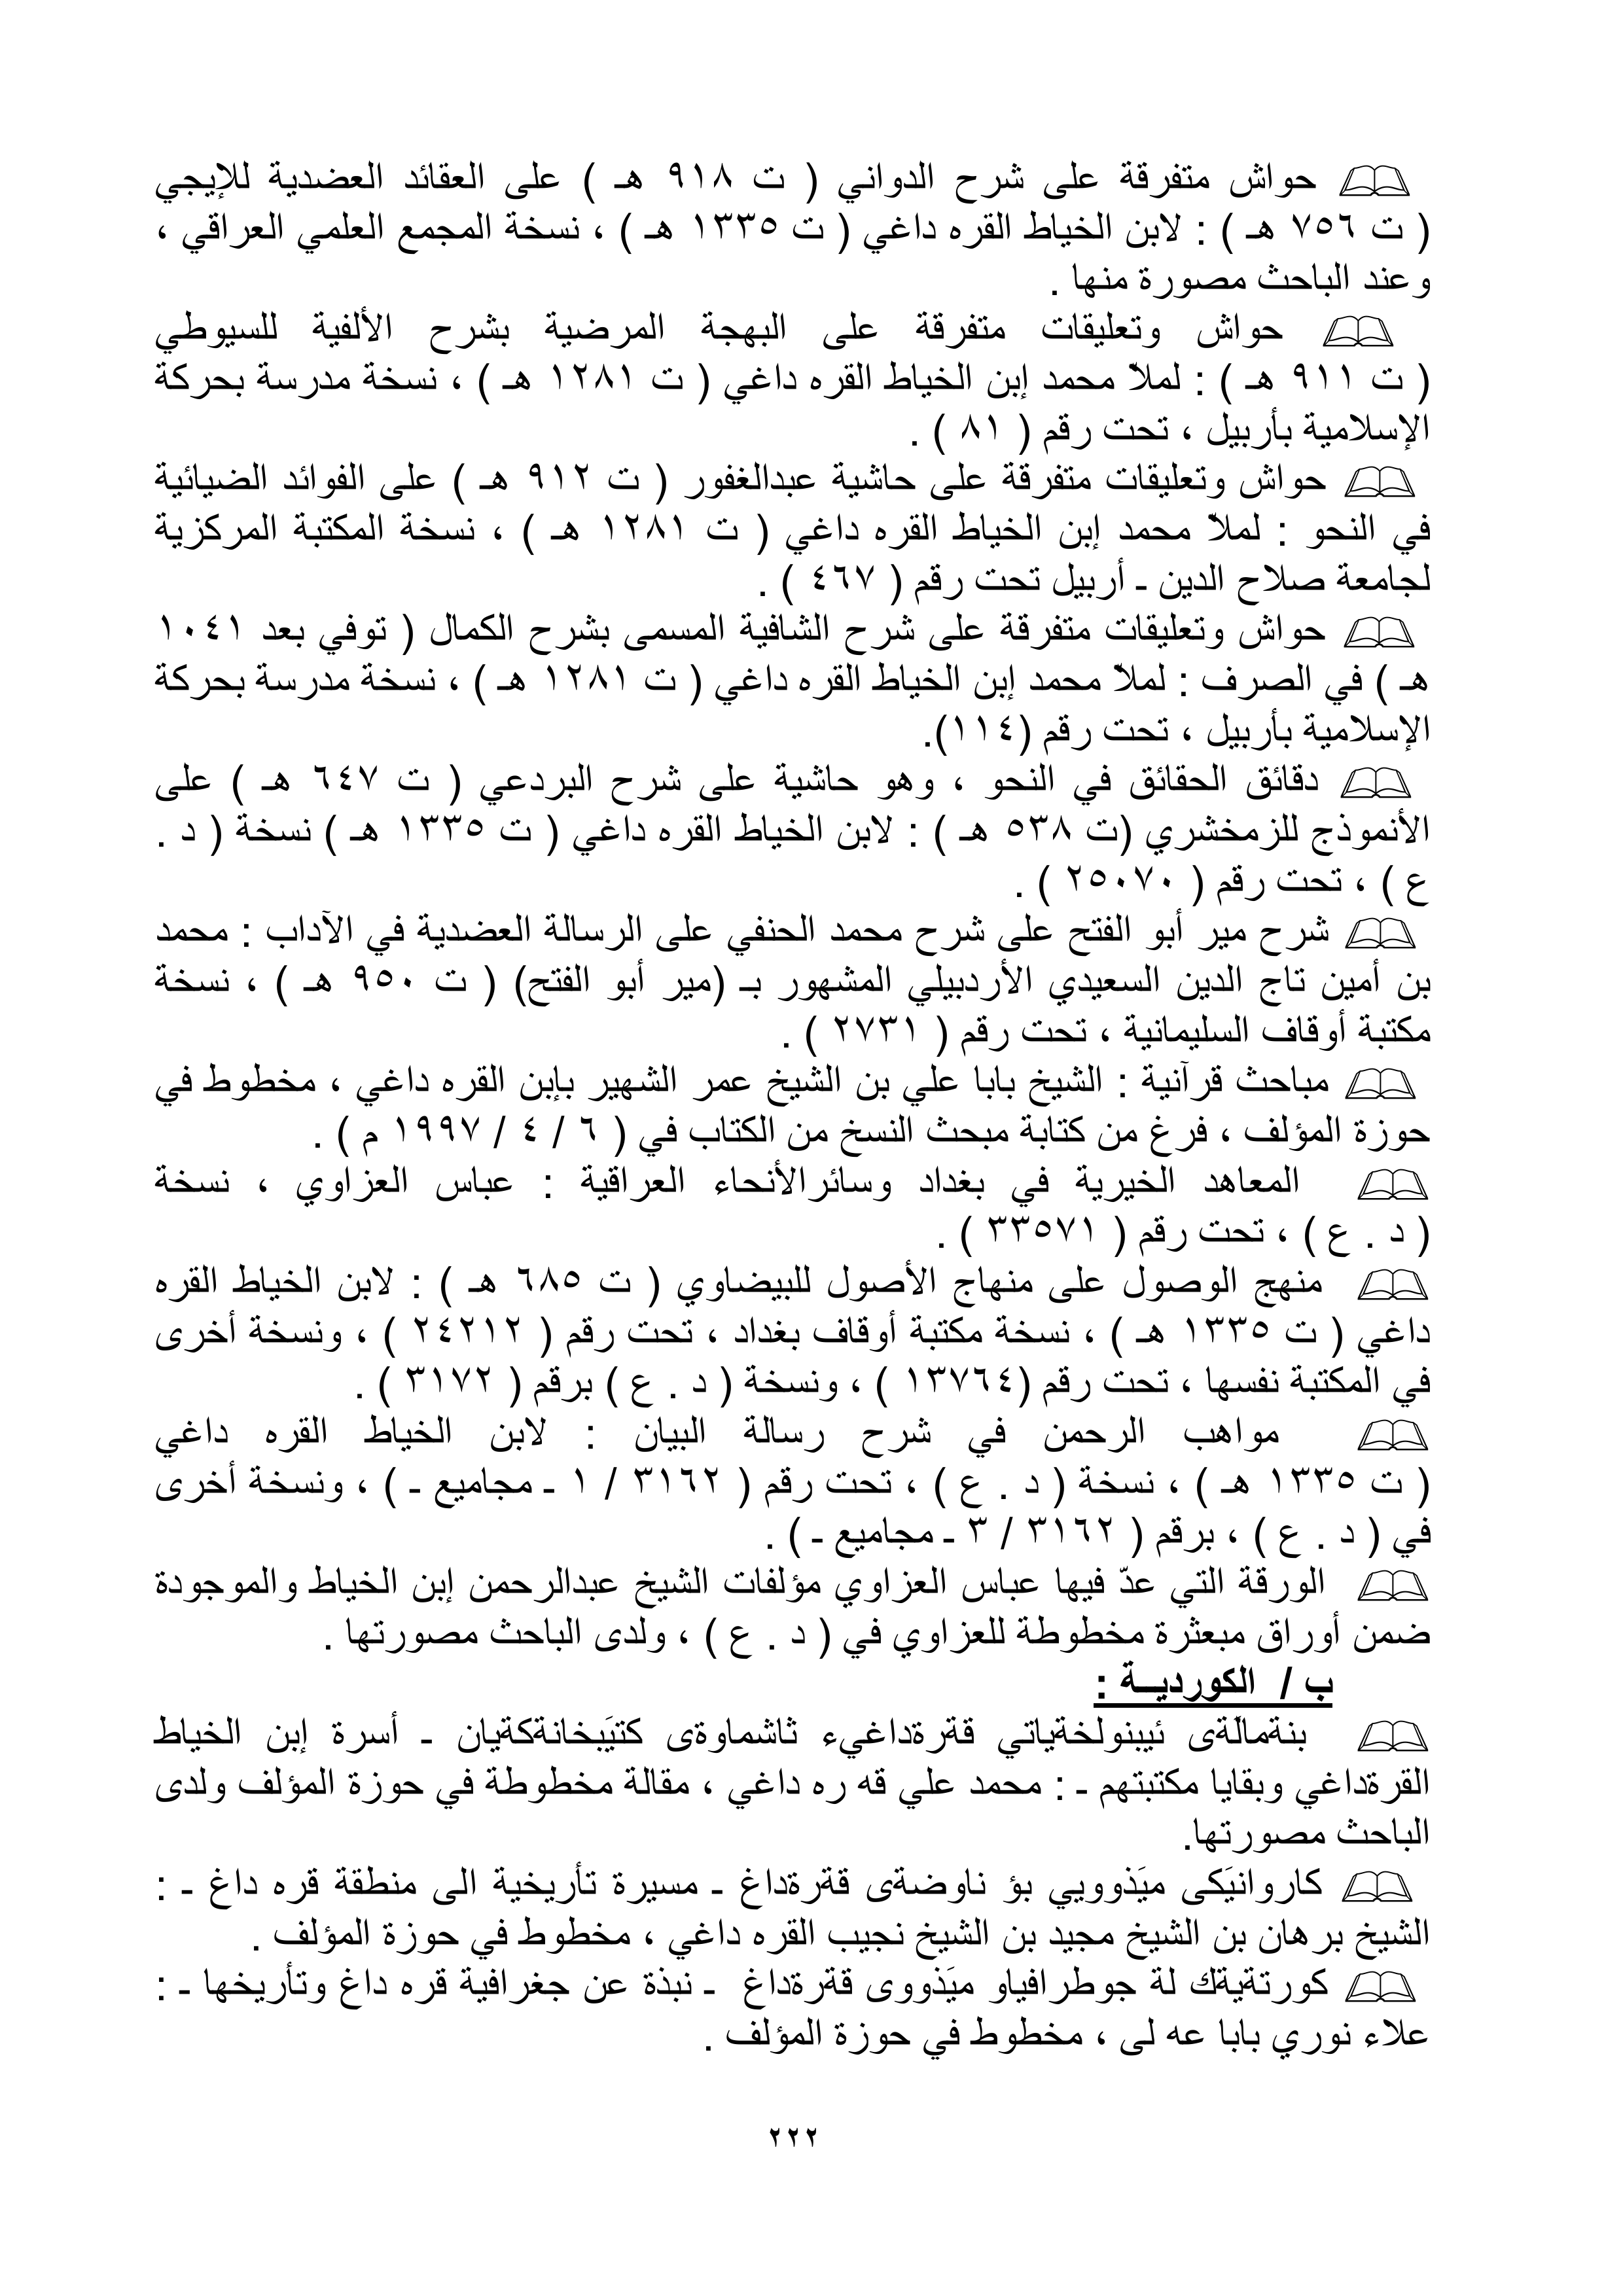 حواش متفرقة على شرح الدواني ( ت ٩١٨ هـ ) على العقائد العضدية للإيجي
( ت ٧٥٦ هـ ) : لابن الخياط القره داغي ( ت ١٣٣٥ هـ ) ، نسخة المجمع العلمي العراقي ،
وعند الباحث مصورة منها .
حواش وتعليقات متفرقة على البهجة المرضية بشرح الألفية للسيوطي
( ت ٩١١ هـ ) : لملاّ محمد إبن الخياط القره داغي ( ت ١٢٨١ هـ ) ، نسخة مدرسة بحركة
الإسلامية بأربيل ، تحت رقم ( ٨١ ) .
حواش وتعليقات متفرقة على حاشية عبدالغفور ( ت ٩١٢ هـ ) على الفوائد الضيائية
في النحو : لملاّ محمد إبن الخياط القره داغي ( ت ١٢٨١ هـ ) ، نسخة المكتبة المركزية
لجامعة صلاح الدين ـ أربيل تحت رقم ( ٤٦٧ ) .
حواش وتعليقات متفرقة على شرح الشافية المسمى بشرح الكمال ( توفي بعد ١٠٤١
هـ ) في الصرف : لملاّ محمد إبن الخياط القره داغي ( ت ١٢٨١ هـ ) ، نسخة مدرسة بحركة
الإسلامية بأربيل ، تحت رقم (١١٤).
دقائق الحقائق في النحو ، وهو حاشية على شرح البردعي ( ت ٦٤٧ هـ ) على
الأنموذج للزمخشري (ت ٥٣٨ هـ ) : لابن الخياط القره داغي ( ت ١٣٣٥ هـ ) نسخة ( د .
ع ) ، تحت رقم ( ٢٥٠٧٠ ) .
شرح مير أبو الفتح على شرح محمد الحنفي على الرسالة العضدية في الآداب : محمد
بن أمين تاج الدين السعيدي الأردبيلي المشهور بـ (مير أبو الفتح) ( ت ٩٥٠ هـ ) ، نسخة
مكتبة أوقاف السليمانية ، تحت رقم ( ٢٧٣١ ) .
مباحث قرآنية : الشيخ بابا علي بن الشيخ عمر الشهير بإبن القره داغي ، مخطوط في
حوزة المؤلف ، فرغ من كتابة مبحث النسخ من الكتاب في ( ٦ / ٤ / ١٩٩٧ م ) .
المعاهد الخيرية في بغداد وسائرالأنحاء العراقية : عباس العزاوي ، نسخة
( د . ع ) ، تحت رقم ( ٣٣٥٧١ ) .
منهج الوصول على منهاج الأصول للبيضاوي ( ت ٦٨٥ هـ ) : لابن الخياط القره
داغي ( ت ١٣٣٥ هـ ) ، نسخة مكتبة أوقاف بغداد ، تحت رقم ( ٢٤٢١٢ ) ، ونسخة أخرى
في المكتبة نفسها ، تحت رقم (١٣٧٦٤ ) ، ونسخة ( د . ع ) برقم ( ٣١٧٢ ) .
مواهب الرحمن في شرح رسالة البيان : لابن الخياط القره داغي
( ت ١٣٣٥ هـ ) ، نسخة ( د . ع ) ، تحت رقم ( ٣١٦٢ / ١ ـ مجاميع ـ ) ، ونسخة أخرى
في ( د . ع ) ، برقم ( ٣١٦٢ / ٣ ـ مجاميع ـ ) .
الورقة التي عدّ فيها عباس العزاوي مؤلفات الشيخ عبدالرحمن إبن الخياط والموجودة
ضمن أوراق مبعثرة مخطوطة للعزاوي في ( د . ع ) ، ولدى الباحث مصورتها .
ب / الكورديــة :
بنةمالَةى ئيبنولخةياتي قةرةداغيء ثاشماوةى كتيَبخانةكةيان ـ أسرة إبن الخياط
القرةداغي وبقايا مكتبتهم ـ : محمد علي قه ره داغي ، مقالة مخطوطة في حوزة المؤلف ولدى
الباحث مصورتها.
كاروانيَكى ميَذوويي بؤ ناوضةى قةرةداغ ـ مسيرة تأريخية الى منطقة قره داغ ـ :
الشيخ برهان بن الشيخ مجيد بن الشيخ نجيب القره داغي ، مخطوط في حوزة المؤلف .
كورتةيةك لة جوطرافياو ميَذووى قةرةداغ ـ نبذة عن جغرافية قره داغ وتأريخها ـ :
علاء نوري بابا عه لى ، مخطوط في حوزة المؤلف .
٢٢٢